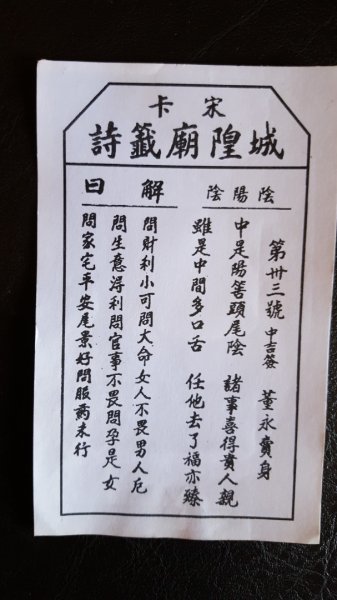 宋卡
城隍廟籤詩
陰陽陰
第卅三號 中吉簽 董永賣身
中是陽筶頭尾陰 諸事喜得貴人親
雖是中間多口舌 任他去了福亦臻
解曰
問財利小可問大命女人不畏男人厄
問生意得利問官事不畏問孕是女
問家宅平安尾景好問服葯未行